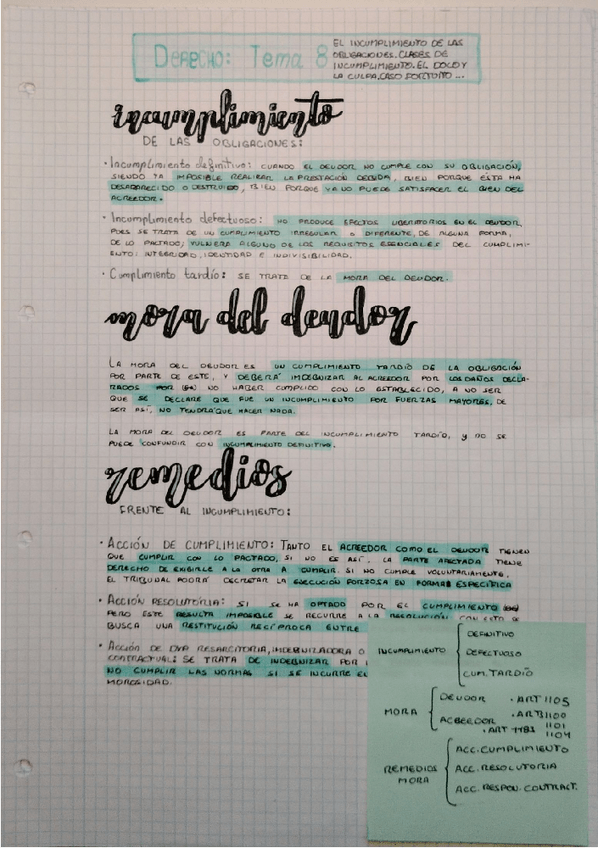 Derecho: Tema 8
EL INCUMPLIMIENTO DE LAS
OBLIGACIONES. CLASES DE
INCUMPLIMIENTO. EL DOLO Y
LA CULPA. CASO FORTUITO ...
incumplimiento
DE LAS OBLIGACIONES:
· Incumplimiento definitivo: CUANDO EL DEUDOR NO CUMPLE CON SU OBLIGACIÓN,
SIENDO YA IMPOSIBLE REALIZAR LA PRESTACIÓN DEBIDA, BIEN PORQUE ÉSTA HA
DESAPARECIDO O DESTRUIDO, BIEN PORQUE YA NO PUEDE SATISFACER EL BIEN DEL
ACREEDOR.
· Incumplimiento defectuoso: NO PRODUCE EFECTOS LIBERATORIOS EN EL DEUDOR,
PUES SE TRATA DE UN CUMPLIMIENTO IRREGULAR O DIFERENTE, DE ALGUNA FORMA,
DE LO PACTADO; VULNERA ALGUNO DE LOS REQUISITOS ESENCIALES DEL CUMPLIMI-
ENTO: INTEGRIDAD, IDENTIDAD E INDIVISIBILIDAD.
· Cumplimiento tardío: SE TRATA DE LA MORA DEL DEUDOR.
mora del deudor
LA MORA DEL DEUDOR ES UN CUMPLIMIENTO TARDÍO DE LA OBLIGACIÓN
POR PARTE DE ESTE, Y DEBERÁ INDEMNIZAR AL ACREEDOR POR LOS DAÑOS DECLA-
RADOS POR NO HABER CUMPLIDO CON LO ESTABLECIDO, A NO SER
QUE SE DECLARE QUE FUE UN INCUMPLIMIENTO POR FUERZAS MAYORES, DE
SER ASÍ, NO TENDRÁ QUE HACER NADA.
LA MORA DEL DEUDOR ES PARTE DEL INCUMPLIMIENTO TARDÍO, Y NO SE
PUEDE CONFUNDIR CON INCUMPLIMIENTO DEFINITIVO.
remedios
FRENTE AL INCUMPLIMIENTO:
· ACCIÓN DE CUMPLIMIENTO: TANTO EL ACREEDOR COMO EL DEUDOR TIENEN
QUE CUMPLIR CON LO PACTADO, SI NO ES ASÍ, LA PARTE AFECTADA TIENE
DERECHO DE EXIGIRLE A LA OTRA A CUMPLIR. SI NO CUMPLE VOLUNTARIAMENTE,
EL TRIBUNAL PODRÁ DECRETAR LA EJECUCIÓN FORZOSA EN FORMA ESPECÍFICA
· ACCIÓN RESOLUTORIA: SI SE HA OPTADO POR EL CUMPLIMIENTO
PERO ESTE RESULTA IMPOSIBLE SE RECURRE A LA RESOLUCIÓN, CON ESTO SE
BUSCA UNA RESTITUCIÓN RECÍPROCA ENTRE
· ACCIÓN DE RESARCITORIA, INDEMNIZADORA O
CONTRACTUAL: SE TRATA DE INDEMNIZAR POR
NO CUMPLIR LAS NORMAS SI SE INCURRE
MOROSIDAD.
INCUMPLIMIENTO
DEFINITIVO
DEFECTUOSO
CUM. TARDÍO
MORA
DEUDOR · ART 1105
ACREEDOR · ART 1100
1101
· ART 1104
REMEDIOS
MORA
ACC. CUMPLIMIENTO
ACC. RESOLUTORIA
ACC. RESPON. CONTRACT.